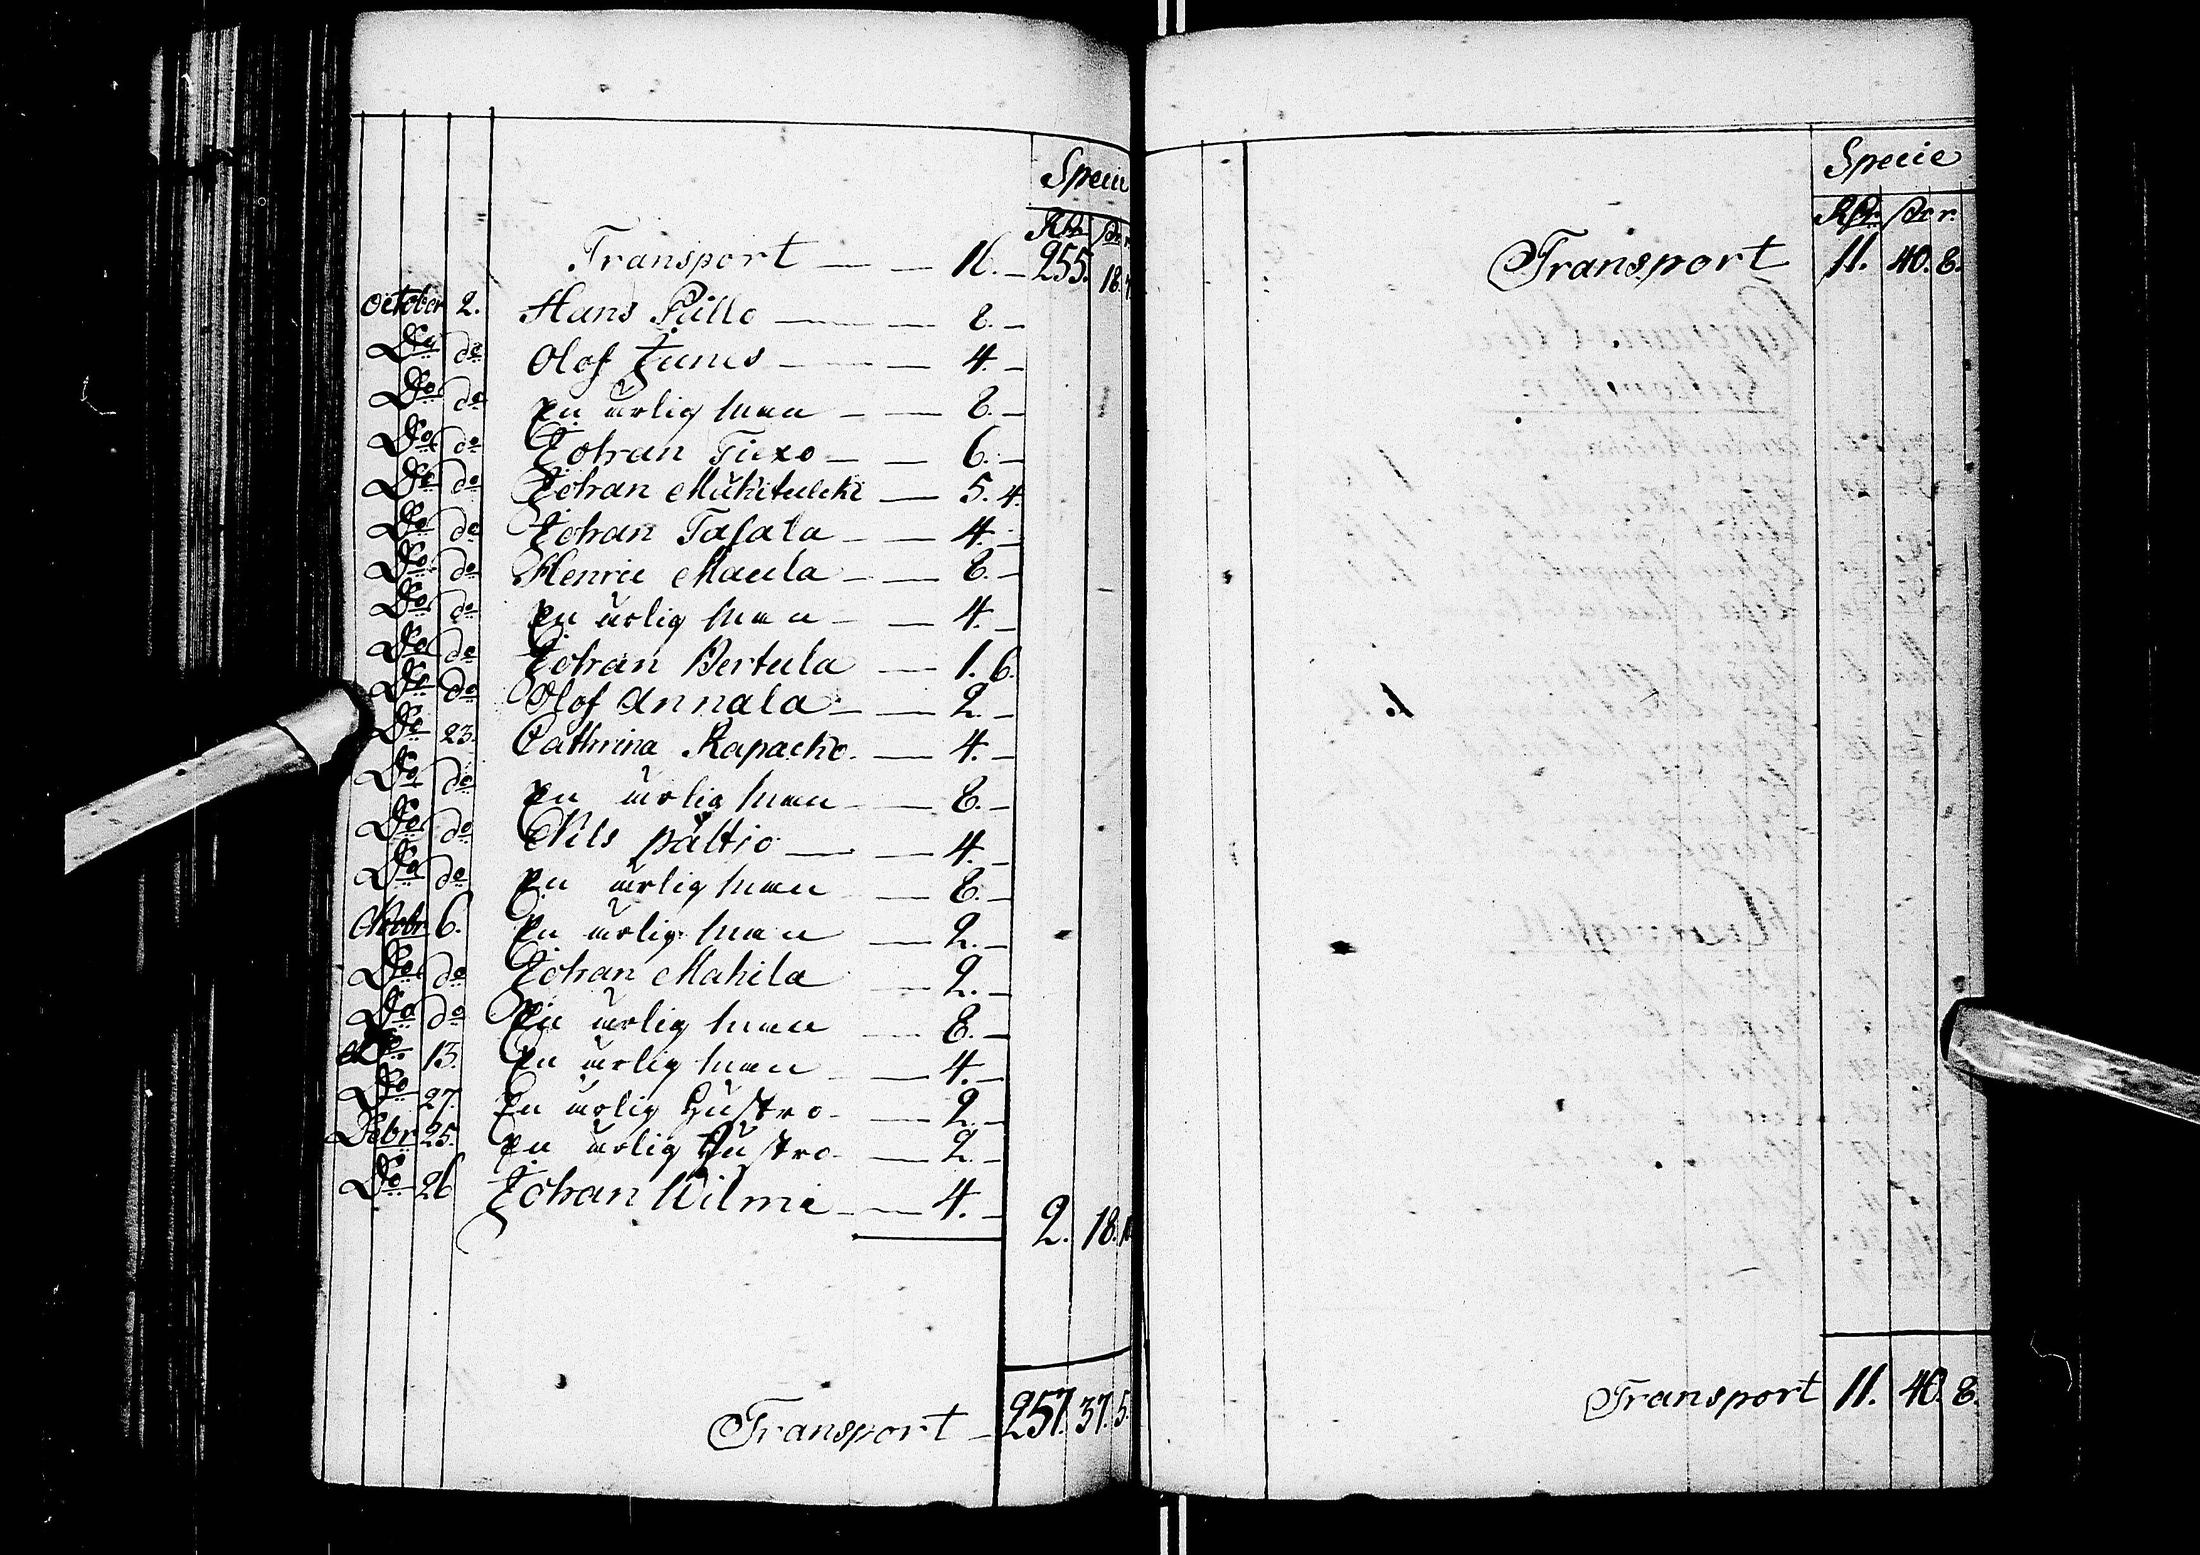 Specie
Rdr sk. r.
Transport — — 16. — 255. 18.
October 2. Hans Pillo — — 8. —
Do do Olof Junes — — 4. —
Do do En ärlig man — — 8. —
Do do Johan Tiexo — — 6. —
Do do Johan — 5. 4.
Do do Johan Tasala — — 4. —
Do do Henric Maula — — 8. —
Do do En ärlig man — — 4. —
Do do Johan Bertula — 1. 6.
Do do Olof Annala — — 2. —
Do 23. Cathrina Rapacko — 4. —
Do do En ärlig man — 8. —
Do do Nils pältio — — 4. —
Do do En ärlig man — 8. —
Novbr 6. En ärlig man — 2. —
Do do Johan Mahila — 2. —
Do do En ärlig man — 8. —
Do 13. En ärlig man — 4. —
Do 27. En ärlig Hustro — 2. —
Debr 25. En ärlig Hustro — 2. —
Do 26 Johan Wilmi — — 4. — 2. 18.
Transport — 257. 37. 5.
Specie
Rdr sk r.
Transport 11. 40. 8.
1.
Transport 11. 40. 8.